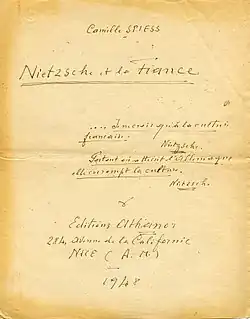 Camille SPIESS
Nietzsche et la France
.... Je ne crois qu'à la culture
française.
Nietzsche.
Partout où atteint l'Allemagne
elle corrompt la culture.
Nietzsch.
Editions Athanor
284, avenue de la Californie
NICE (A. M.)
1948